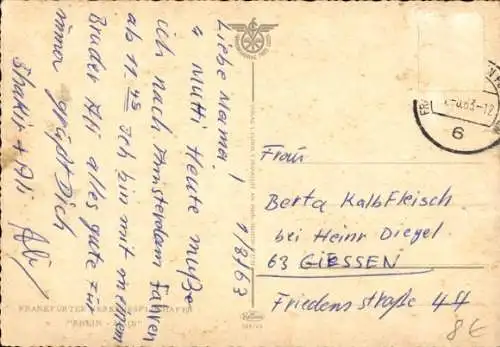 Liebe Mama!
+ Mutti Heute muße
ich nach Amsterdam Fahren
ab 11.45 Ich bin mit meinem
Bruder Ali alles gute für
immer grüßt Dich
Shakir + Ali
1/8/63
6
Frau
Berta Kalbfleisch
bei Heinr Diegel
63 GIESSEN
Friedensstraße 44
8€